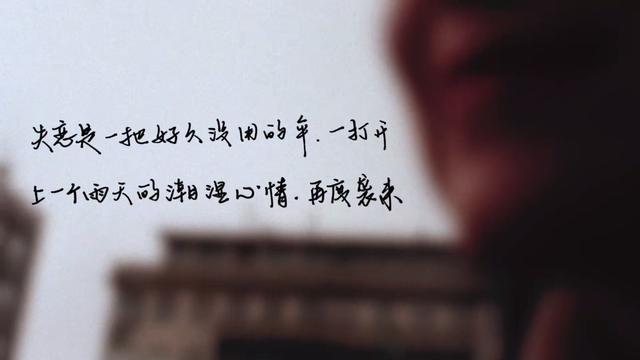 失恋是一把好久没用的伞.一打开
上一个雨天的潮湿心情.再度袭来